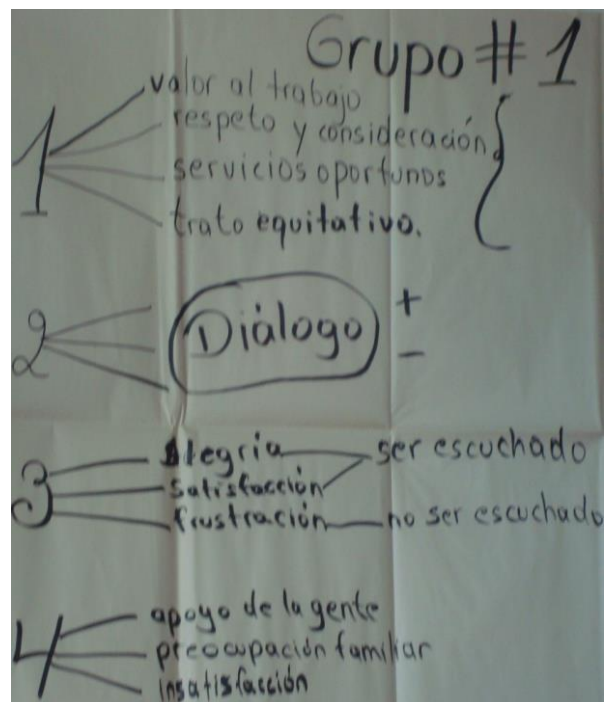 Grupo # 1
1
valor al trabajo
respeto y consideración
servicios oportunos
trato equitativo.
2
Diálogo
+
-
3
Alegría ser escuchado
Satisfacción
frustración no ser escuchado
4
apoyo de la gente
preocupación familiar
insatisfacción